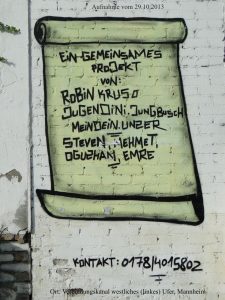 Aufnahme vom 29.10.2013
EIN GEMEINSAMES
PROJEKT
VON:
ROBIN KRUSO
JUGENDINI, JUNGBUSCH
MEINDEIN UNZER
STEVEN, MEHMET,
OGUZHAN, EMRE
KONTAKT: 0178/4015802
Ort: Verbindungskanal westliches (linkes) Ufer, Mannheim